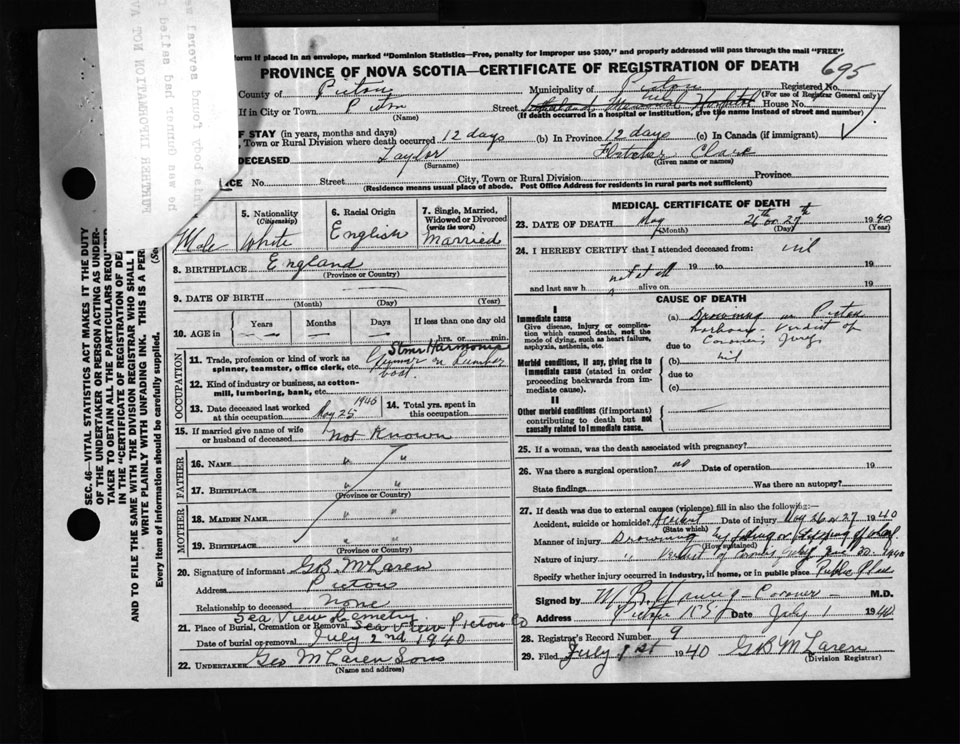 form if placed in an envelope, marked "Dominion Statistics—Free, penalty for improper use $300," and properly addressed will pass through the mail "FREE"
PROVINCE OF NOVA SCOTIA—CERTIFICATE OF REGISTRATION OF DEATH
695
County of Pictou Municipality of Pictou Registered No.
(For use of Registrar General only)
If in City or Town Pictou Street Memorial Hospital House No.
(Name) (If death occurred in a hospital or institution, give the name instead of street and number)
OF STAY (in years, months and days)
Town or Rural Division where death occurred 12 days (b) In Province 12 days (c) In Canada (if immigrant)
DECEASED Taylor Fletcher Clare
(Surname) (Given name or names)
CE No. Street City, Town or Rural Division Province
(Residence means usual place of abode. Post Office Address for residents in rural parts not sufficient)
FURTHER INFORMATION NOT AVA
his body found several
SEC. 46—VITAL STATISTICS ACT MAKES IT THE DUTY
OF THE UNDERTAKER OR PERSON ACTING AS UNDER-
TAKER TO OBTAIN ALL THE PARTICULARS REQUIRED
IN THE "CERTIFICATE OF REGISTRATION OF DE
AND TO FILE THE SAME WITH THE DIVISION REGISTRAR WHO SHALL I
WRITE PLAINLY WITH UNFADING INK. THIS IS A PER
Every item of information should be carefully supplied. (Se
5. Nationality (Citizenship) 6. Racial Origin 7. Single, Married, Widowed or Divorced (write the word)
Male White English Married
8. BIRTHPLACE England
(Province or Country)
9. DATE OF BIRTH
(Month) (Day) (Year)
10. AGE in Years Months Days If less than one day old
hrs. or min.
OCCUPATION
11. Trade, profession or kind of work as spinner, teamster, office clerk, etc. Stmr Harmonia
on Lumber boat
12. Kind of industry or business, as cotton-mill, lumbering, bank, etc.
13. Date deceased last worked at this occupation May 25 1940 14. Total yrs. spent in this occupation
15. If married give name of wife or husband of deceased Not Known
FATHER
16. NAME " "
17. BIRTHPLACE " "
(Province or Country)
MOTHER
18. MAIDEN NAME " "
19. BIRTHPLACE " "
(Province or Country)
20. Signature of informant GB McLaren
Address Pictou
Relationship to deceased None
Sea View Cemetry
21. Place of Burial, Cremation or Removal Sea View Pictou Co
Date of burial or removal July 2nd 1940
22. UNDERTAKER Geo McLaren Sons
(Name and address)
MEDICAL CERTIFICATE OF DEATH
23. DATE OF DEATH May 26th or 27th 1940
(Month) (Day) (Year)
24. I HEREBY CERTIFY that I attended deceased from: nil
not at all 19 to 19
and last saw h alive on 19
CAUSE OF DEATH
I
Immediate cause
Give disease, injury or complication which caused death, not the mode of dying, such as heart failure, asphyxia, asthenia, etc.
(a) Drowning in Pictou
harbour - Verdict of
due to Coroner's Jury
Morbid conditions, if any, giving rise to immediate cause (stated in order proceeding backwards from immediate cause).
(b) nil
due to
(c)
II
Other morbid conditions (if important) contributing to death but not causally related to immediate cause.
25. If a woman, was the death associated with pregnancy?
26. Was there a surgical operation? no Date of operation 19
State findings Was there an autopsy?
27. If death was due to external causes (violence) fill in also the following:—
Accident, suicide or homicide? Accident Date of injury May 26 or 27 1940
(State which)
Manner of injury Drowning by falling or stepping off wharf
(How sustained)
Nature of injury " Verdict of Coroner's Jury June 30 1940
Specify whether injury occurred in industry, in home, or in public place Public Place
Signed by Coroner - M.D.
Address Pictou N.S. Date July 1 1940
28. Registrar's Record Number 9
29. Filed July 1st 1940 GB McLaren
(Division Registrar)